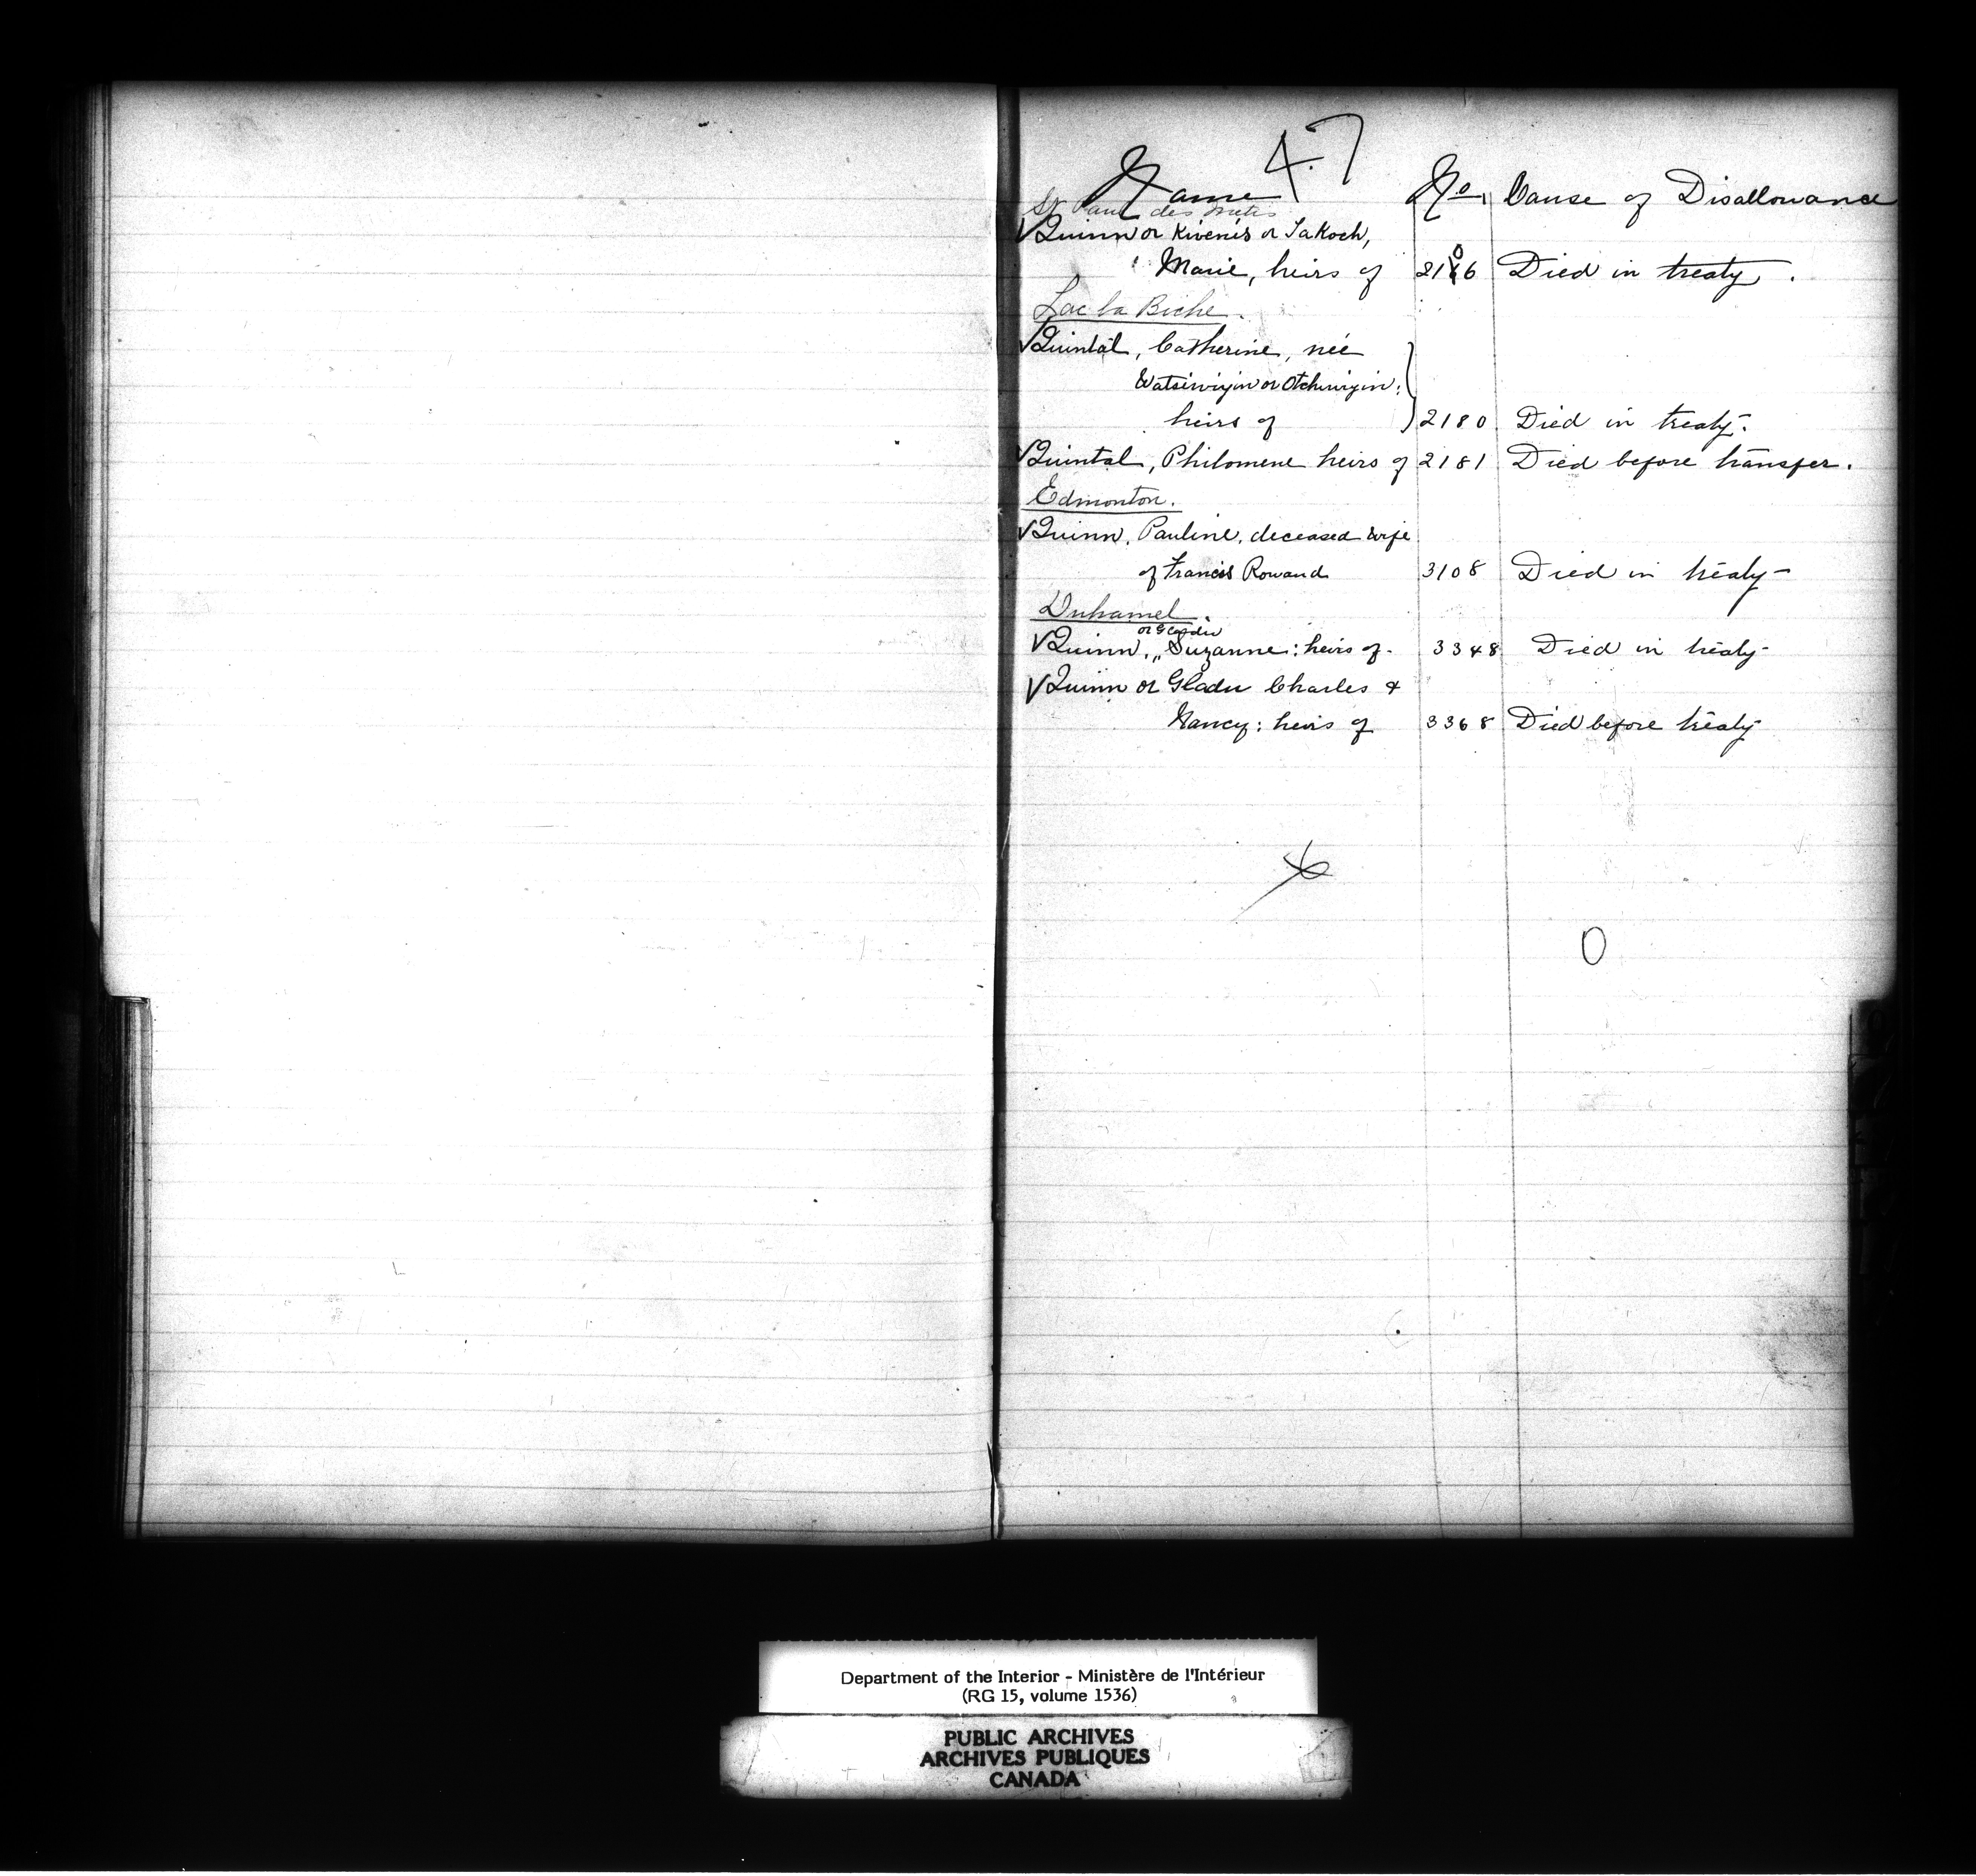 47
Name No. Cause of Disallowance
St Paul des Metis
✓Quinn or Kivenis or Jakoch,
Marie, heirs of 2106 Died in treaty.
Lac la Biche.
✓Quintal, Catherine, née
Watsiwiyin or Otchiwiyin;
heirs of 2180 Died in treaty.
✓Quintal, Philomene heirs of 2181 Died before transfer.
Edmonton.
✓Quinn, Pauline, deceased wife
of Francis Rowand 3108 Died in treaty-
Duhamel.
or Gladu
✓Quinn, „ Suzanne: heirs of. 3348 Died in treaty-
✓Quinn or Gladu Charles &
Nancy: heirs of 3368 Died before treaty
0
Department of the Interior - Ministère de l'Intérieur
(RG 15, volume 1536)
PUBLIC ARCHIVES
ARCHIVES PUBLIQUES
CANADA